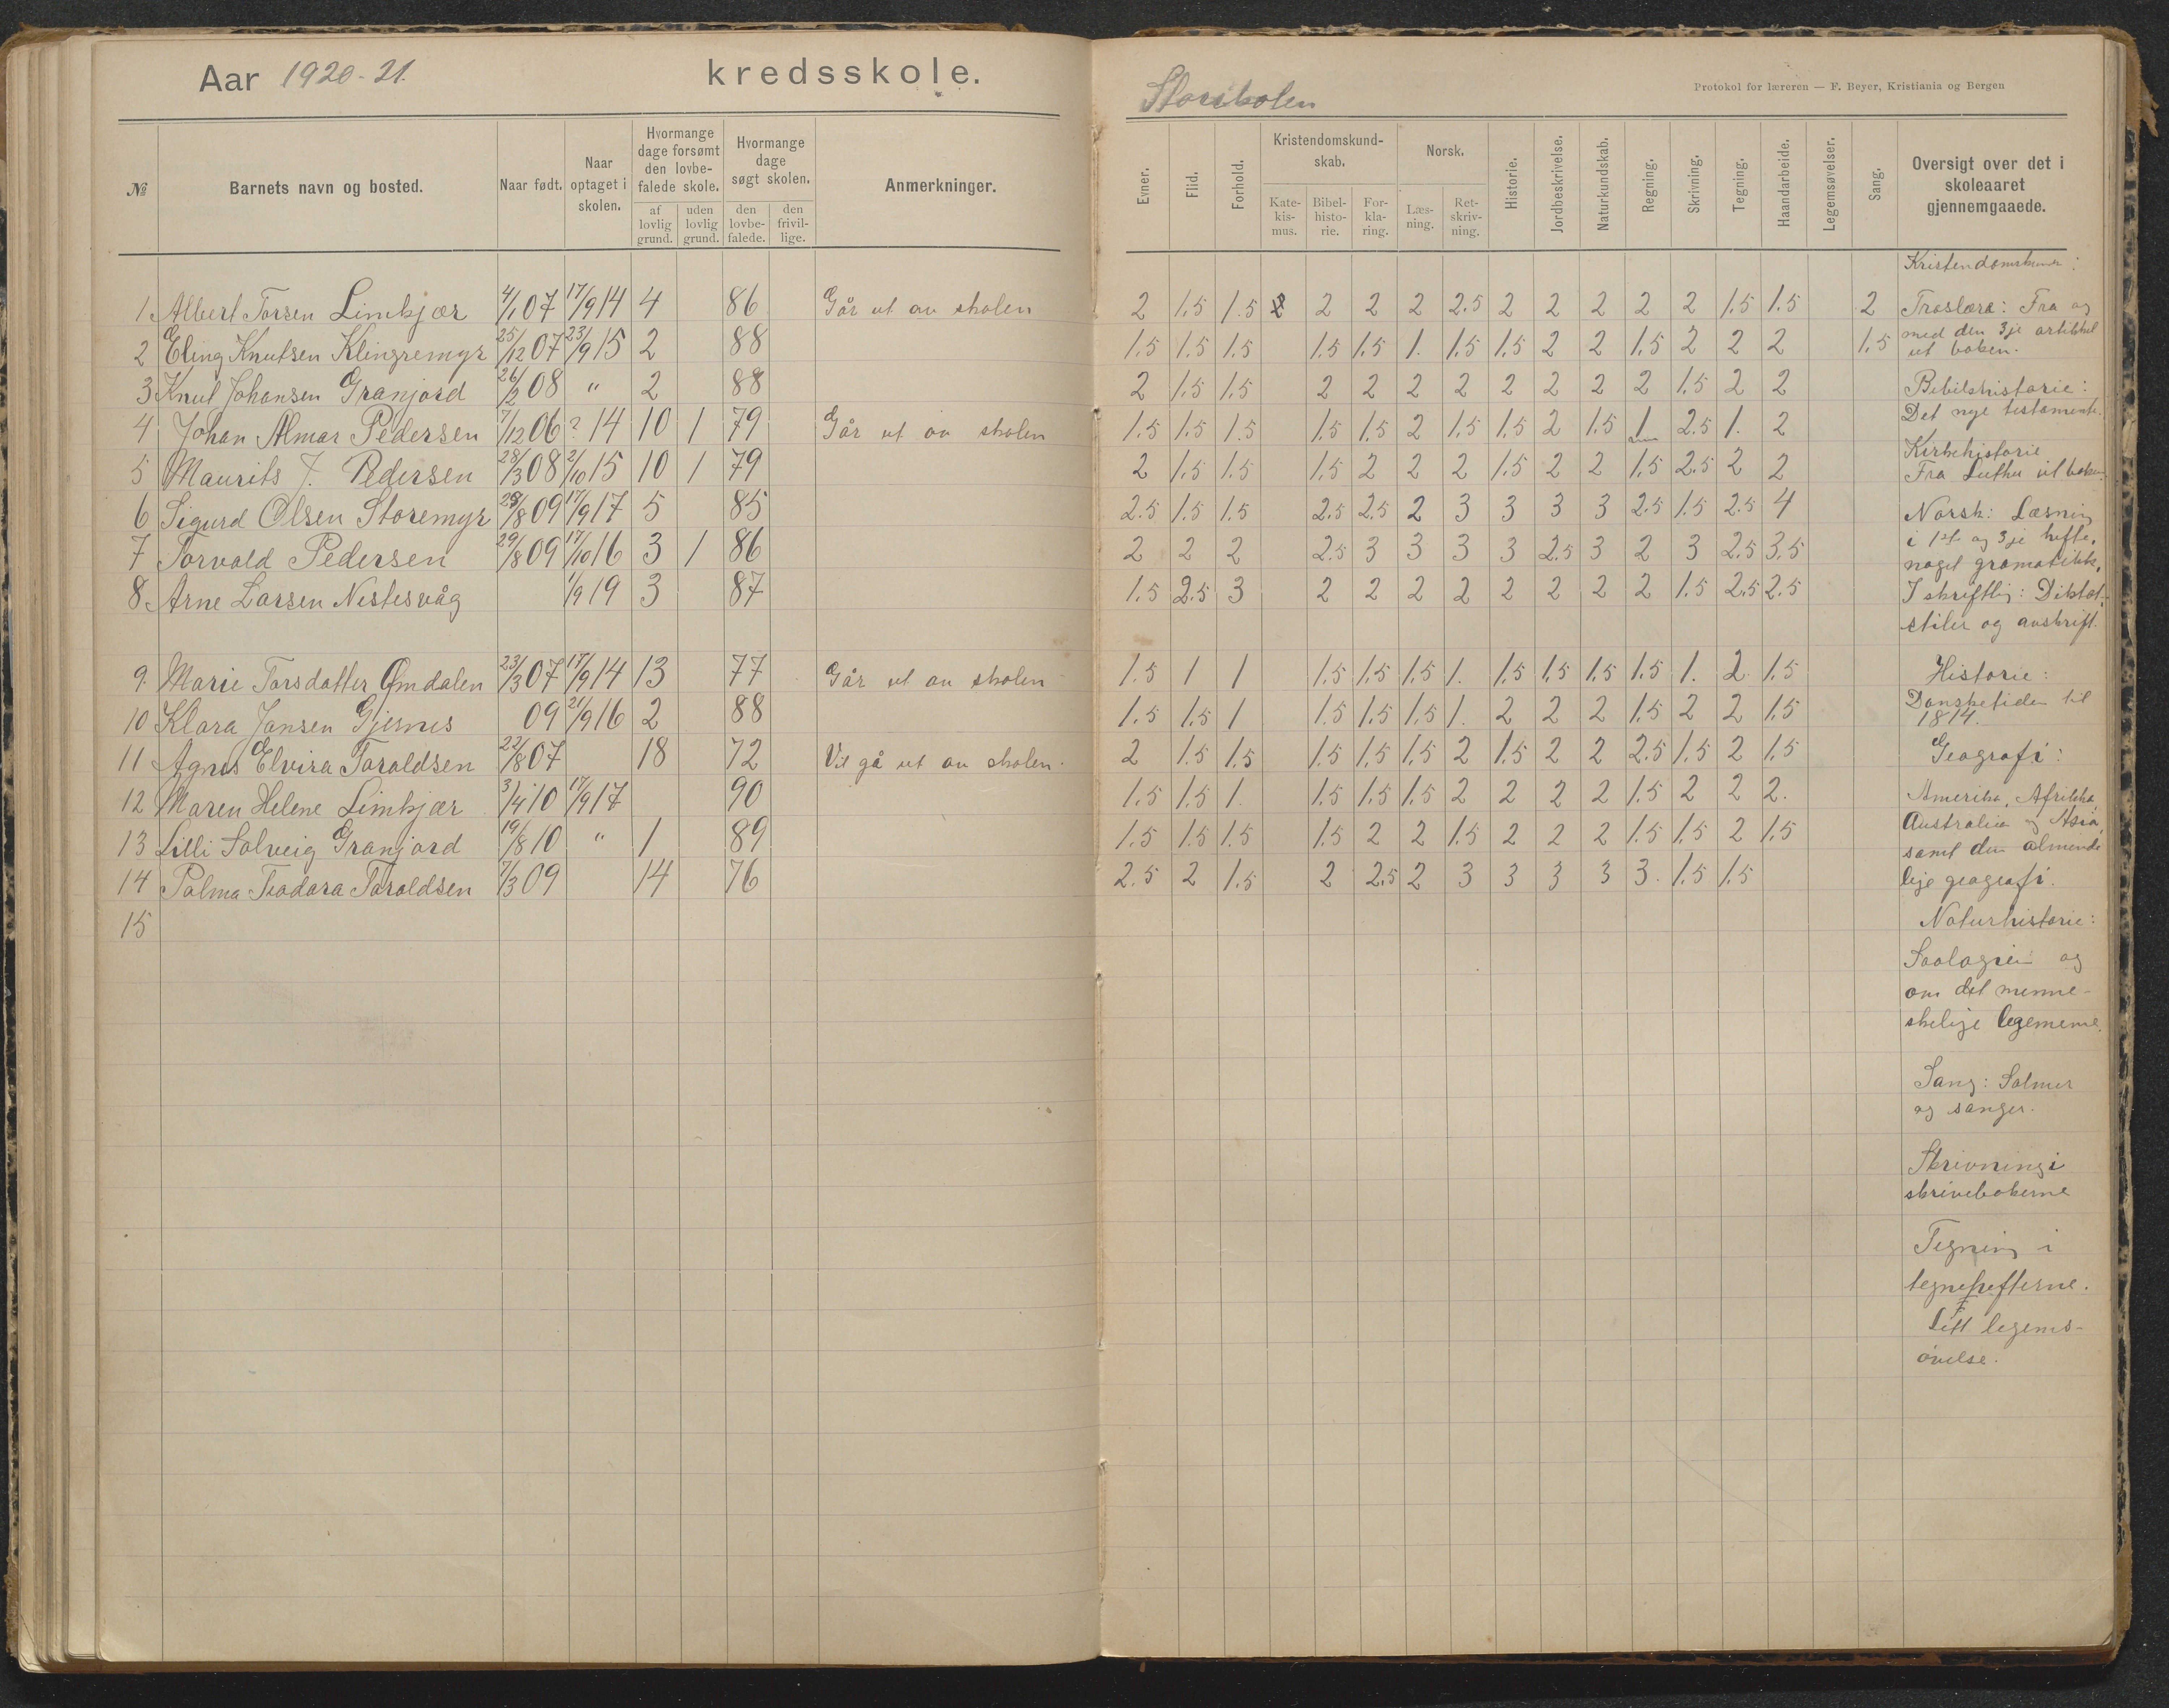 Aar 1920-21. kredsskole.
№ Barnets navn og bosted. Naar født. Naar optaget i skolen. Hvormange dage forsømt den lovbefalede skole. af lovlig grund. uden lovlig grund. Hvormange dage søgt skolen. den lovbefalede. den frivillige. Anmerkninger.
1 Albert Torsen Limkjær 4/1 07 17/9 14 4 86 Går ut av skolen
2 Eling Knutsen Klingremyr 25/12 07 23/9 15 2 88
3 Knut Johansen Granjord 26/2 08 " 2 88
4 Johan Almar Pedersen 7/12 06 ? 14 10 1 79 Går ut av skolen
5 Maurits J. Pedersen 28/3 08 2/10 15 10 1 79
6 Sigurd Olsen Storemyr 28/8 09 17/9 17 5 85
7 Torvald Pedersen 29/8 09 17/10 16 3 1 86
8 Arne Larsen Nestesvåg 1/9 19 3 87
9. Marie Torsdatter Omdalen 23/3 07 17/9 14 13 77 Går ut av skolen
10 Klara Jansen Gjesnes 09 21/9 16 2 88
11 Agnes Elvira Taraldsen 22/8 07 18 72 Vil gå ut av skolen.
12 Maren Helene Limkjær 3/4 10 17/9 17 90
13 Lilli Solveig Granjord 19/8 10 " 1 89
14 Palma Teodora Taraldsen 7/3 09 14 76
15
Storskolen
Protokol for læreren — F. Beyer, Kristiania og Bergen
Evner. Flid. Forhold. Kristendomskundskab. Katekismus. Bibelhistorie. Forklaring. Norsk. Læsning. Retskrivning. Historie. Jordbeskrivelse. Naturkundskab. Regning. Skrivning. Tegning. Haandarbeide. Legemsøvelser. Sang. Oversigt over det i skoleaaret gjennemgaaede.
2 1.5 1.5 2 2 2 2 2.5 2 2 2 2 2 1.5 1.5 2
1.5 1.5 1.5 1.5 1.5 1. 1.5 1.5 2 2 1.5 2 2 2 1.5
2 1.5 1.5 2 2 2 2 2 2 2 2 1.5 2 2
1.5 1.5 1.5 1.5 1.5 2 1.5 1.5 2 1.5 1 2.5 1. 2
2 1.5 1.5 1.5 2 2 2 1.5 2 2 1.5 2.5 2 2
2.5 1.5 1.5 2.5 2.5 2 3 3 3 3 2.5 1.5 2.5 4
2 2 2 2.5 3 3 3 3 2.5 3 2 3 2.5 3.5
1.5 2.5 3 2 2 2 2 2 2 2 2 1.5 2.5 2.5
1.5 1 1 1.5 1.5 1.5 1. 1.5 1.5 1.5 1.5 1. 2. 1.5
1.5 1.5 1 1.5 1.5 1.5 1. 2 2 2 1.5 2 2 1.5
2 1.5 1.5 1.5 1.5 1.5 2 1.5 2 2 2.5 1.5 2 1.5
1.5 1.5 1. 1.5 1.5 1.5 2 2 2 2 1.5 2 2 2.
1.5 1.5 1.5 1.5 2 2 1.5 2 2 2 1.5 1.5 2 1.5
2.5 2 1.5 2 2.5 2 3 3 3 3 3. 1.5 1.5
Troslære: Fra og
med den 3je artikkel
ut boken.
Bibelshistorie:
Det nye testamente.
Kirkehistorie
Fra Luther ut boken.
Norsk: Læsning
i 1ste og 3je hefte,
noget gramatikk,
I skriftlig: Diktat,
stiler og avskrift.
Historie:
Dansketiden til
1814.
Geografi:
Amerika, Afrikka,
Australia og Asia,
samt den alminde
lige geografi.
Naturhistorie:
Soologien og
om det menne-
skelige legememe.
Sang: Salmer
og sanger.
Skrivning i
skrivebøkerne
Tegning i
tegnehefterne.
Litt legems-
øvelse.